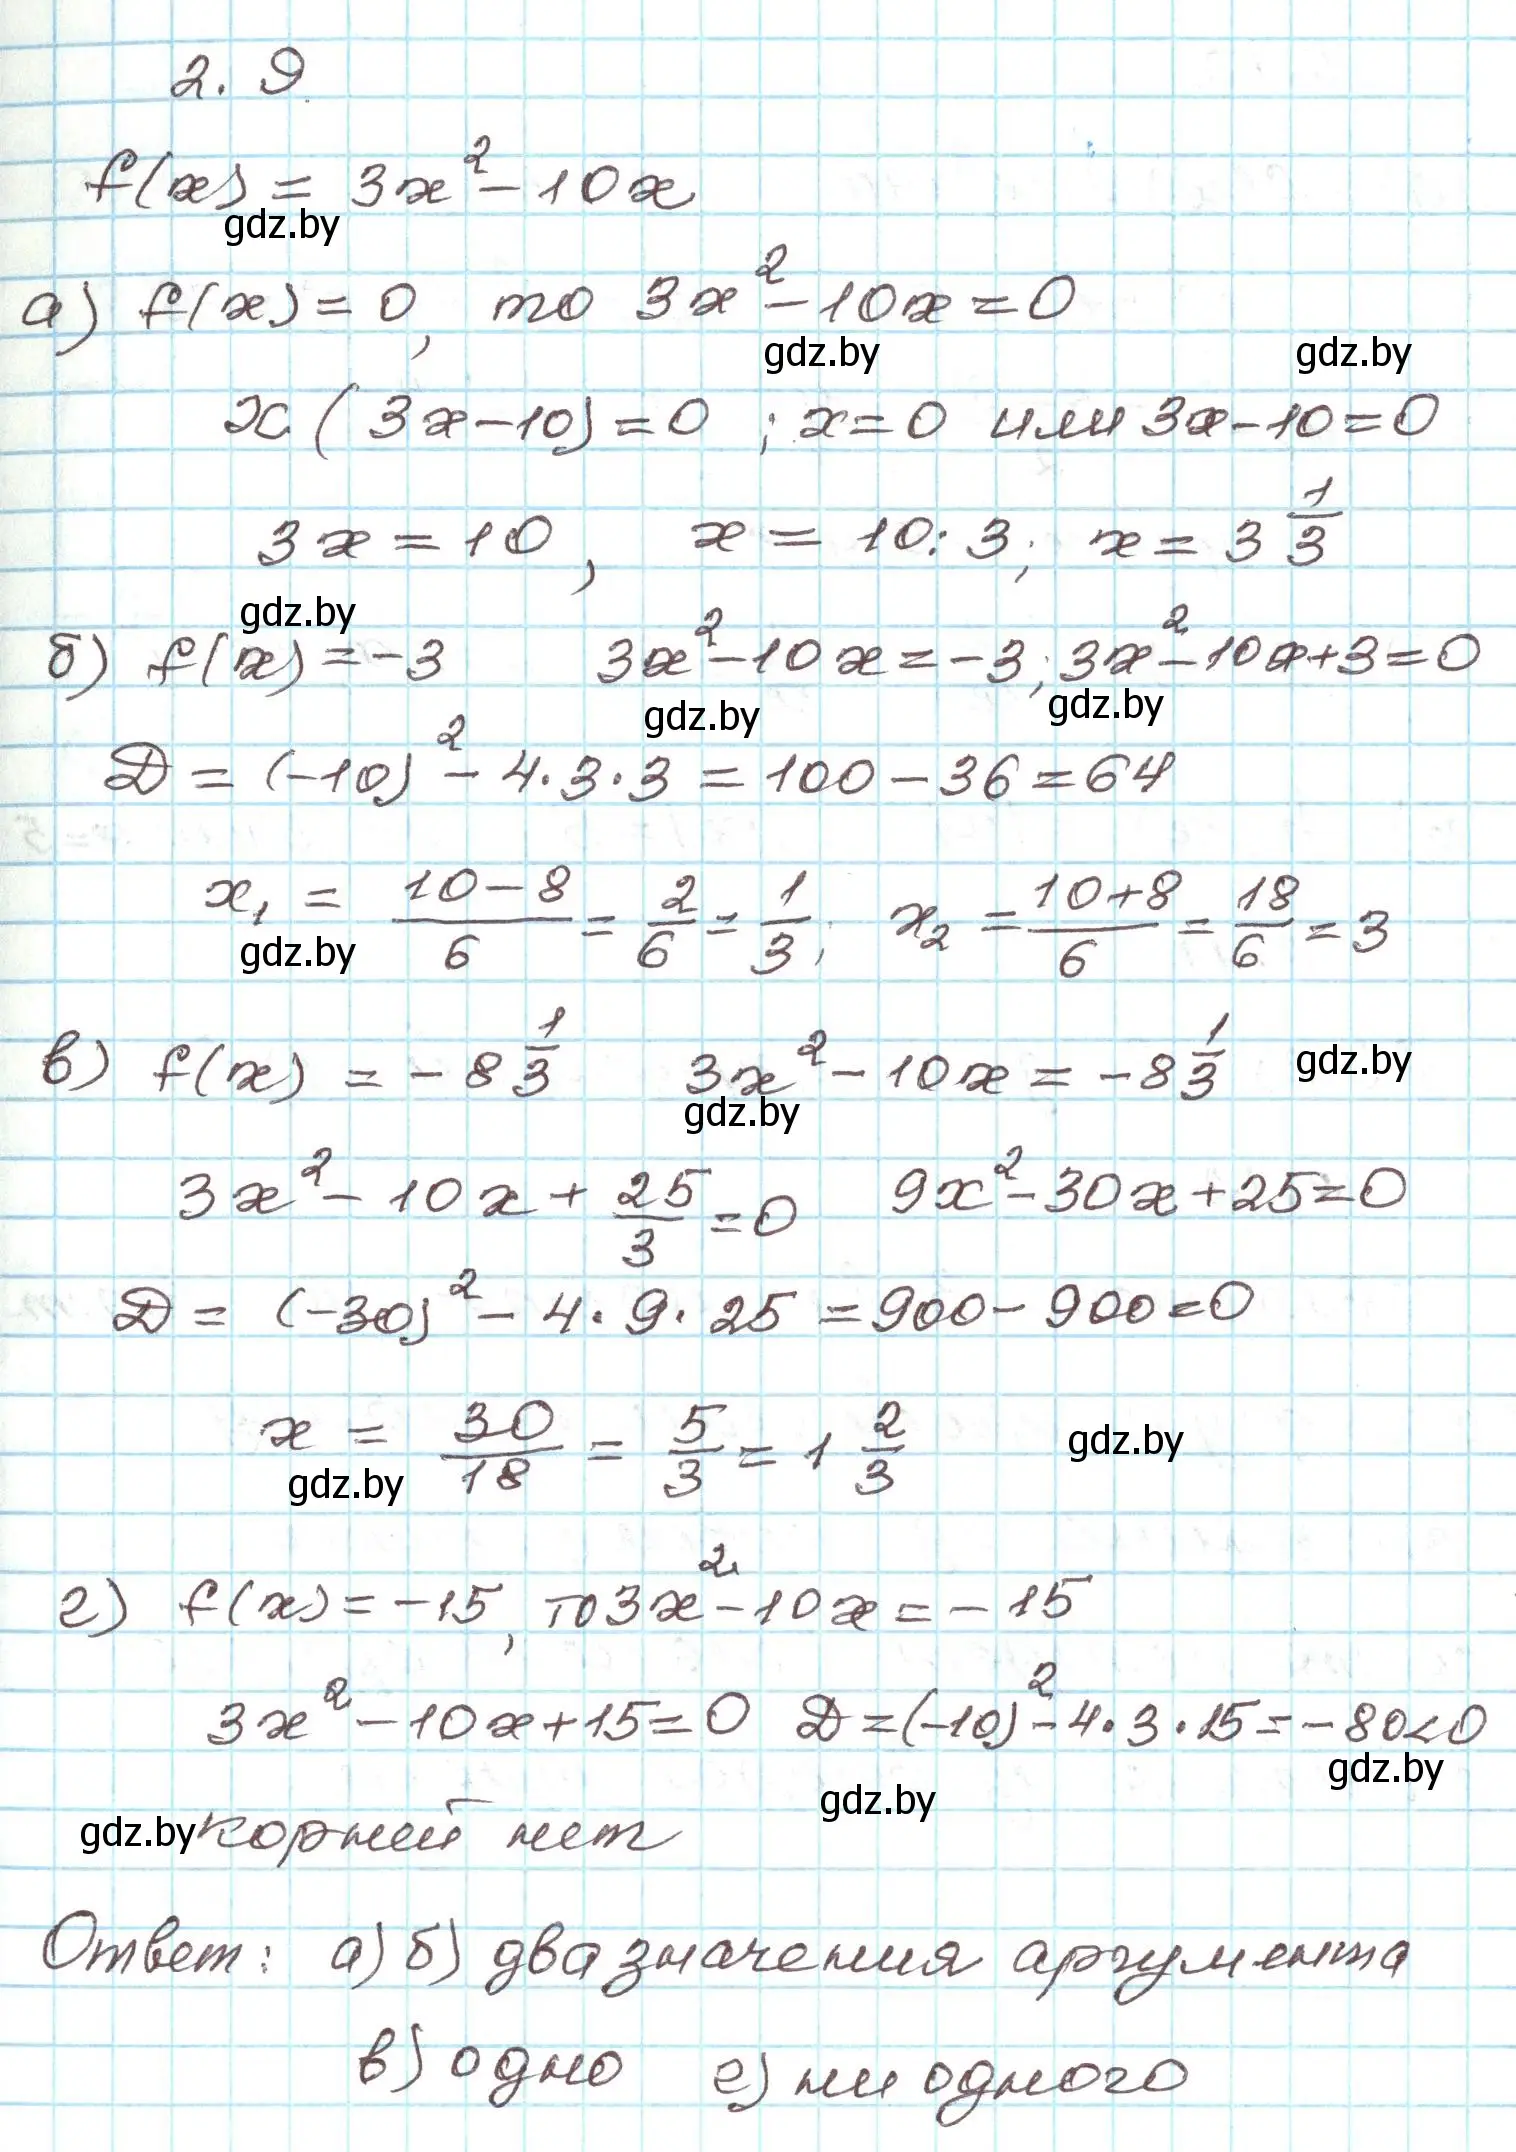 2. 9
f(x) = 3x² - 10x
gdz.by
а) f(x) = 0, то 3x² - 10x = 0
gdz.by gdz.by
x(3x - 10) = 0 ; x = 0 или 3x - 10 = 0
3x = 10, x = 10 : 3; x = 3 1/3
gdz.by
б) f(x) = -3 3x² - 10x = -3; 3x² - 10x + 3 = 0
gdz.by gdz.by
D = (-10)² - 4·3·3 = 100 - 36 = 64
x₁ = (10 - 8)/6 = 2/6 = 1/3; x₂ = (10 + 8)/6 = 18/6 = 3
gdz.by
в) f(x) = -8 1/3 3x² - 10x = -8 1/3 gdz.by
gdz.by
3x² - 10x + 25/3 = 0 9x² - 30x + 25 = 0
D = (-30)² - 4·9·25 = 900 - 900 = 0
x = 30/18 = 5/3 = 1 2/3 gdz.by
gdz.by
г) f(x) = -15, то 3x² - 10x = -15
3x² - 10x + 15 = 0 D = (-10)² - 4·3·15 = -80 < 0
gdz.by gdz.by
gdz.by корней нет
Ответ: а) б) два значения аргумента
в) одно г) ни одного